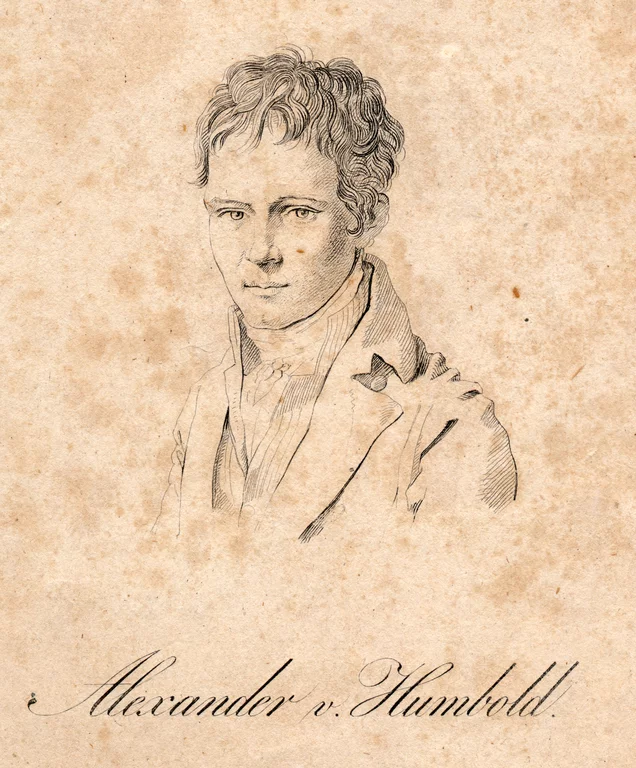 Alexander v. Humbold.